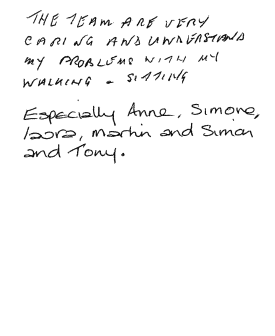 THE TEAM ARE VERY
CARING AND UNDERSTAND
MY PROBLEMS WITH MY
WALKING & SITTING
Especially Anne, Simone,
laura, martin and Simon
and Tony.